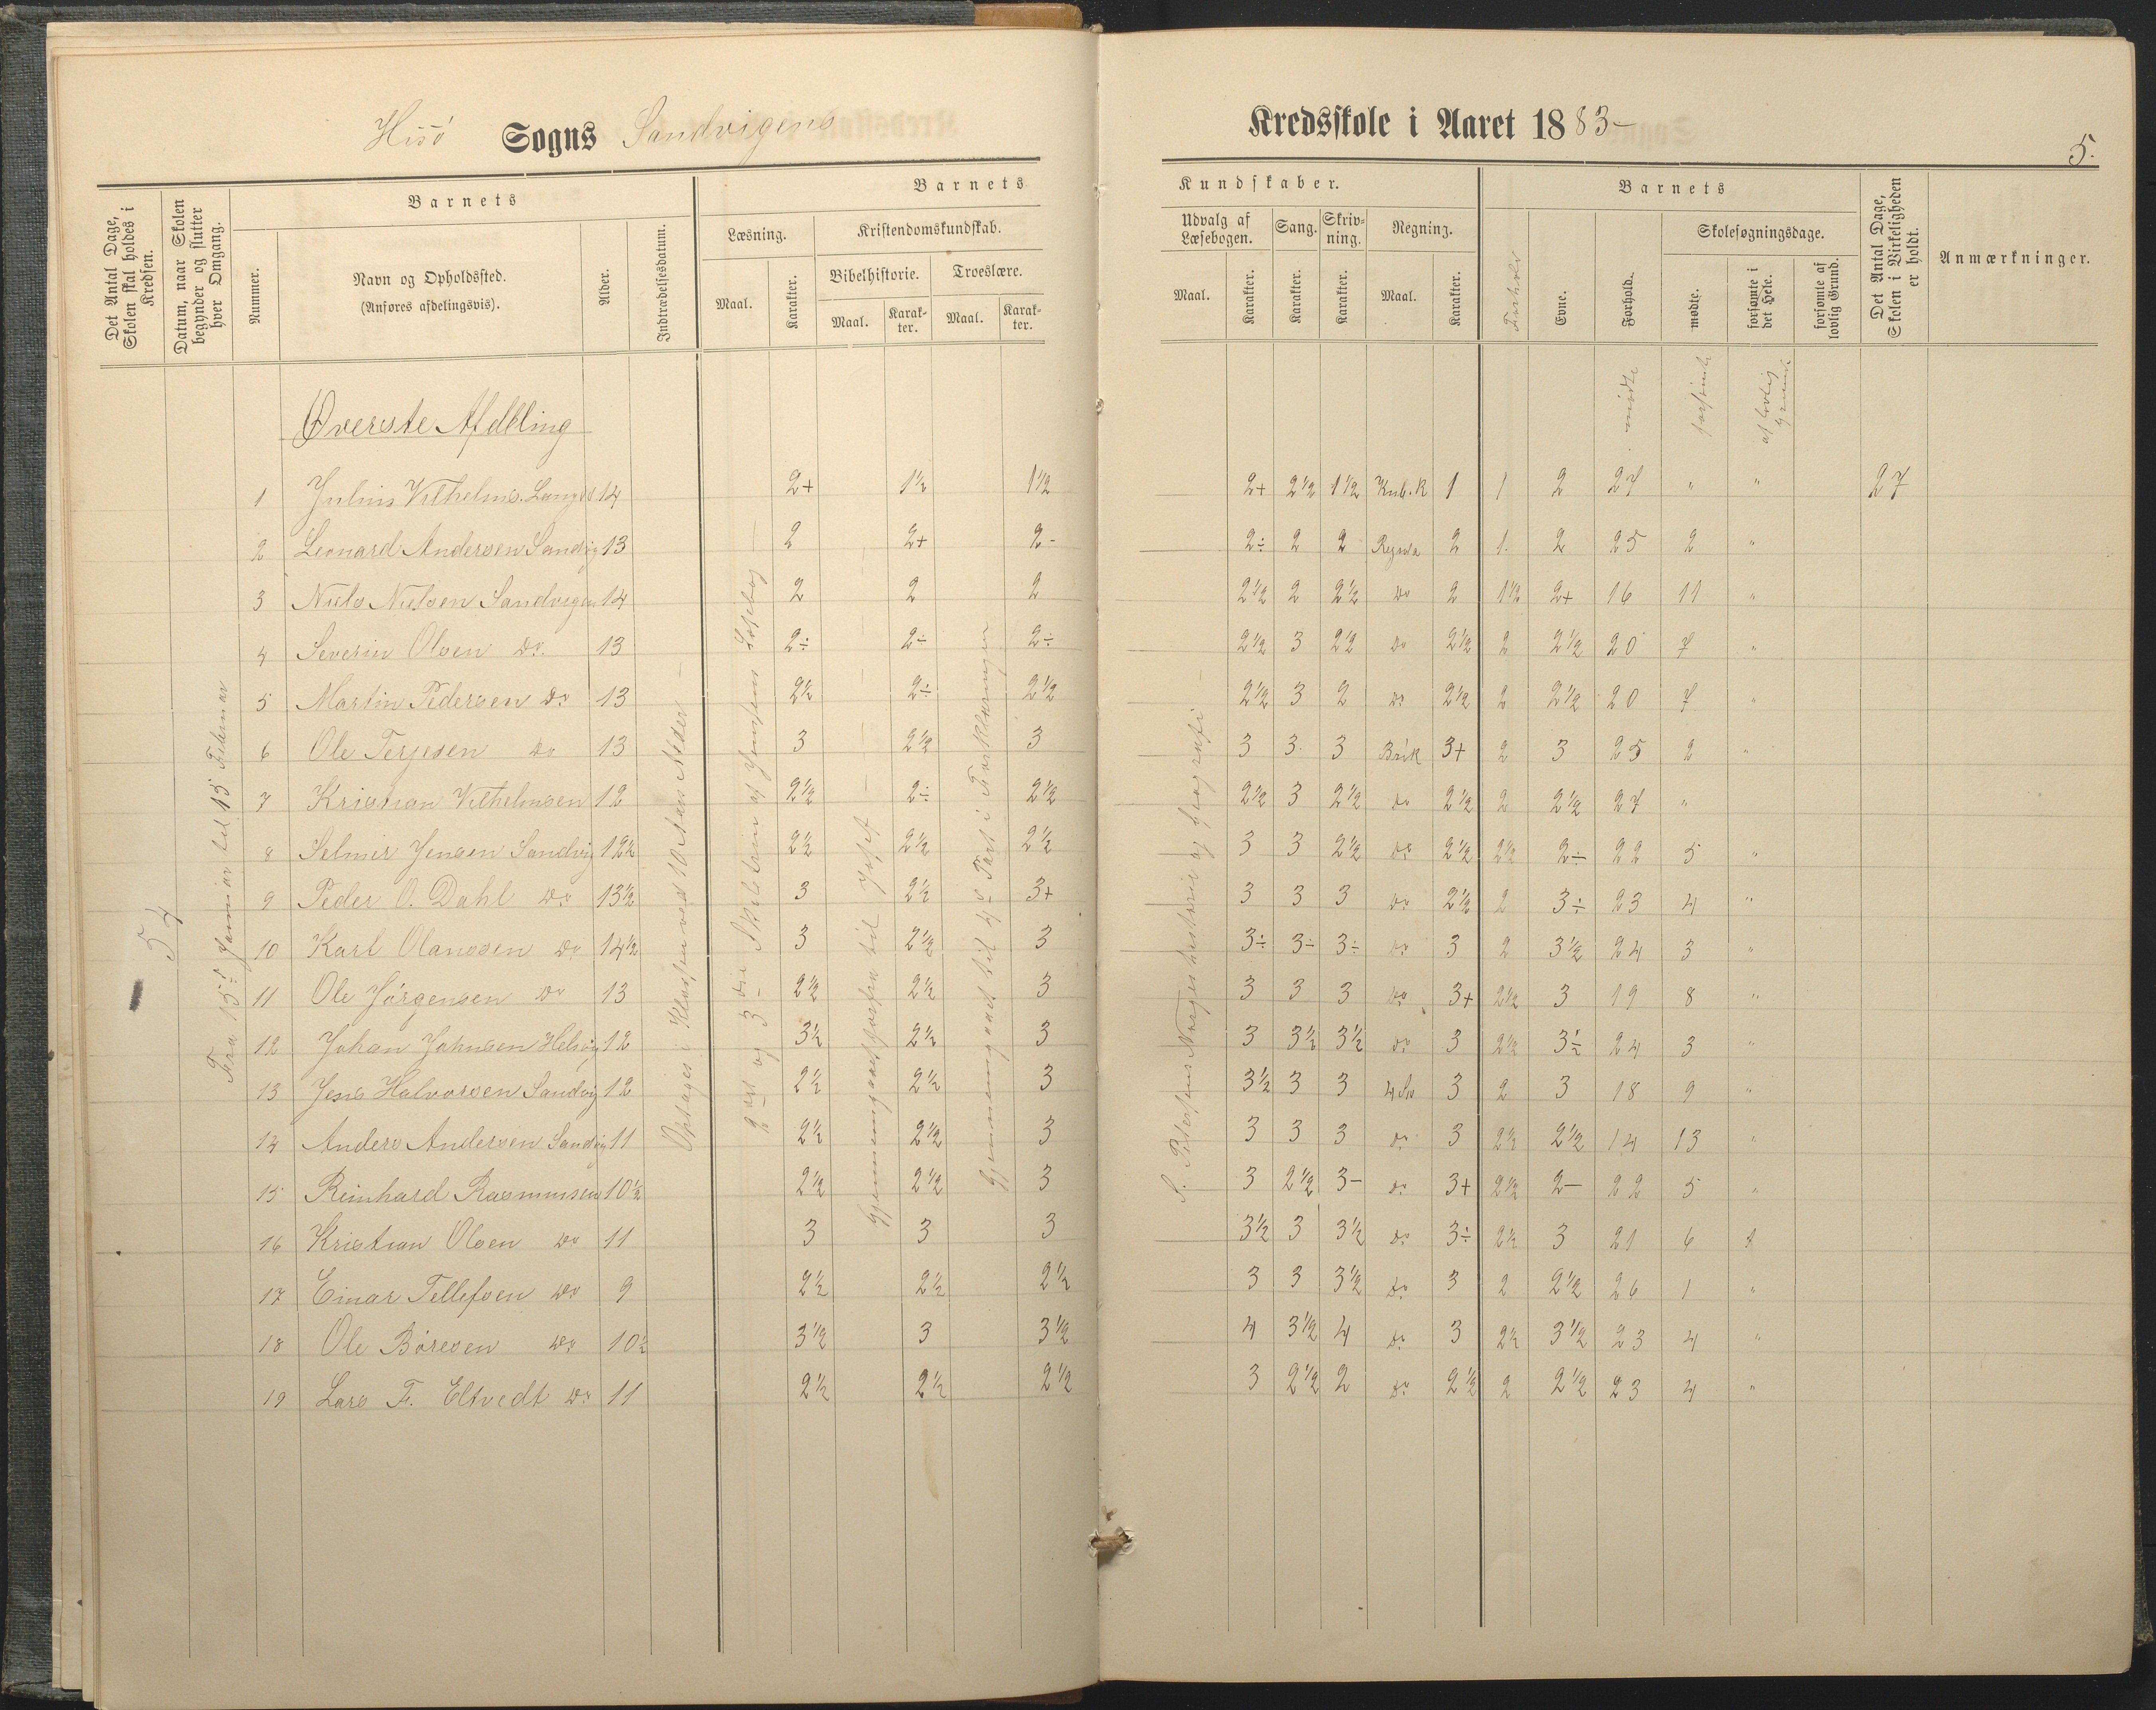 Hisö Sogns Sandvigens Kredsskole i Aaret 1883-
5.
Det Antal Dage, Skolen skal holdes i Kredsen.
Datum, naar Skolen begynder og slutter hver Omgang.
Barnets
Nummer.
Navn og Opholdssted.
(Anføres afdelingsvis).
Alder.
Indtrædelsesdatum.
Barnets Kundskaber.
Læsning.
Maal. Karakter.
Kristendomskundskab.
Bibelhistorie. Troeslære.
Maal. Karakter. Maal. Karakter.
Udvalg af Læsebogen. Sang. Skrivning. Regning.
Maal. Karakter. Karakter. Karakter. Maal. Karakter.
Barnets
Forhold Evne. Forhold.
Skolesøgningsdage.
mødte. forsømte i det Hele. forsømte af lovlig Grund.
Det Antal Dage, Skolen i Virkeligheden er holdt.
Anmærkninger.
mødte forsømte af lovlig Grund
Øverste Afdeling
54
Fra 15 Januar til 15 Februar
Optages i Klassen ved 10 Aars Alder -
2den og 3die af Jensens Læsebog
Gjennemgaaet til Josef
Gjennemgaaet til 4de Part i Forklaringen
S. Petersens Norges historie og geografi -
1 Julius Vilhelms. Langes 14 2+ 1½ 1½ 2+ 2½ 1½ Kub.R 1 1 2 27 " " 27
2 Leonard Andersen Sandvig 13 2 2+ 2- 2÷ 2 2 Regula 2 1. 2 25 2 "
3 Niels Nielsen Sandvigen 14 2 2 2 2½ 2 2½ Do 2 1½ 2+ 16 11 "
4 Severin Olsen Do. 13 2÷ 2÷ 2÷ 2½ 3 2½ Do 2½ 2 2½ 20 7 "
5 Martin Pedersen Do 13 2½ 2÷ 2½ 2½ 3 2 Do 2½ 2 2½ 20 7 "
6 Ole Terjesen Do 13 3 2½ 3 3 3 3 Brök 3+ 2 3 25 2 "
7 Krisman Vilhelmsen 12 2½ 2÷ 2½ 2½ 3 2½ Do 2½ 2 2½ 27 "
8 Selmer Jensen Sandvig 12½ 2½ 2½ 2½ 3 3 2½ Do 2½ 2½ 2÷ 22 5 "
9 Peder O. Dahl Do 13½ 3 2½ 3+ 3 3 3 Do 2½ 2 3÷ 23 4 "
10 Karl Olanssen Do 14½ 3 2½ 3 3÷ 3÷ 3÷ Do 3 2 3½ 24 3 "
11 Ole Jörgensen Do 13 2½ 2½ 3 3 3 3 Do 3+ 2½ 3 19 8 "
12 Johan Johnsen Helsvig 12 3½ 2½ 3 3 3½ 3½ Do 3 2½ 3½ 24 3 "
13 Jens Halvorsen Sandvig 12 2½ 2½ 3 3½ 3 3 4 Sp 3 2 3 18 9 "
14 Anders Andersen Sandvig 11 2½ 2½ 3 3 3 3 Do 3 2½ 2½ 14 13 "
15 Reinhard Rasmussen 10½ 2½ 2½ 3 3 2½ 3- Do 3+ 2½ 2- 22 5 "
16 Kristian Olsen Do 11 3 3 3 3½ 3 3½ Do 3÷ 2½ 3 21 6 1
17 Einar Tellefsen Do 9 2½ 2½ 2½ 3 3 3½ Do 3 2 2½ 26 1 "
18 Ole Böresen Do 10½ 3½ 3 3½ 4 3½ 4 Do 3 2½ 3½ 23 4 "
19 Lars F. Eltvedt Do 11 2½ 2½ 2½ 3 2½ 2 Do 2½ 2 2½ 23 4 "